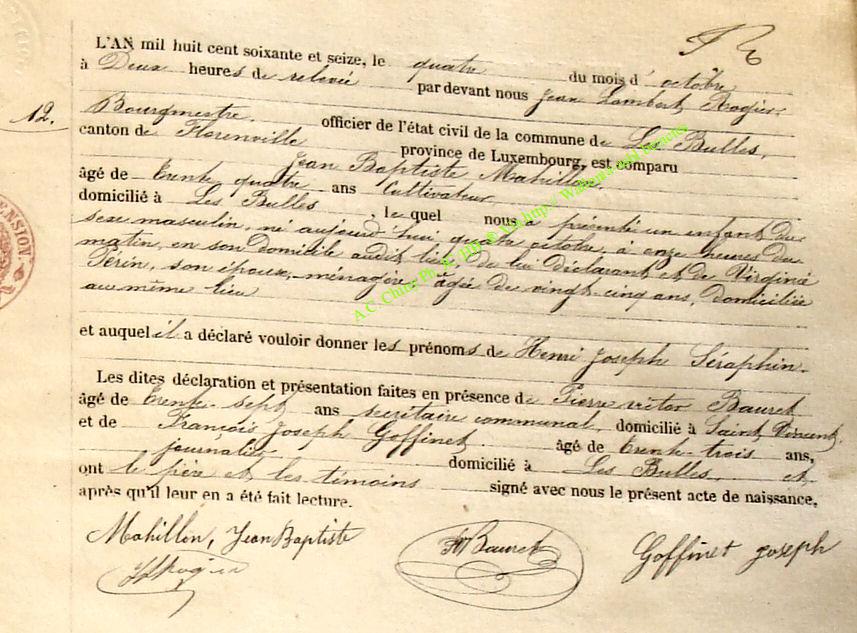 L'AN mil huit cent soixante et seize, le quatre du mois d'octobre
à Deux heures de relevée par devant nous Jean Lambert Rogier
12.
Bourgmestre, officier de l'état civil de la commune de Les Bulles,
canton de Florenville province de Luxembourg, est comparu
Jean Baptiste Mahillon
âgé de trente quatre ans Cultivateur
domicilié à Les Bulles le quel nous a présenté un enfant du
sexe masculin, né aujourd'hui quatre octobre, à onze heures du
matin, en son domicile audit lieu de lui déclarant et de Virginie
Périn, son épouse, ménagère, âgée de vingt-cinq ans, domiciliée
au même lieu
et auquel il a déclaré vouloir donner les prénoms de Henri Joseph Séraphin.
Les dites déclaration et présentation faites en présence de Pierre victor Bauret
âgé de trente-sept ans secrétaire communal, domicilié à Saint Vincent
et de François Joseph Goffinet âgé de trente-trois ans,
journalier domicilié à Les Bulles, et
ont le père et les témoins signé avec nous le présent acte de naissance,
après qu'il leur en a été fait lecture.
Mahillon, Jean Baptiste Bauret Goffinet Joseph
JLRogier
ENSION